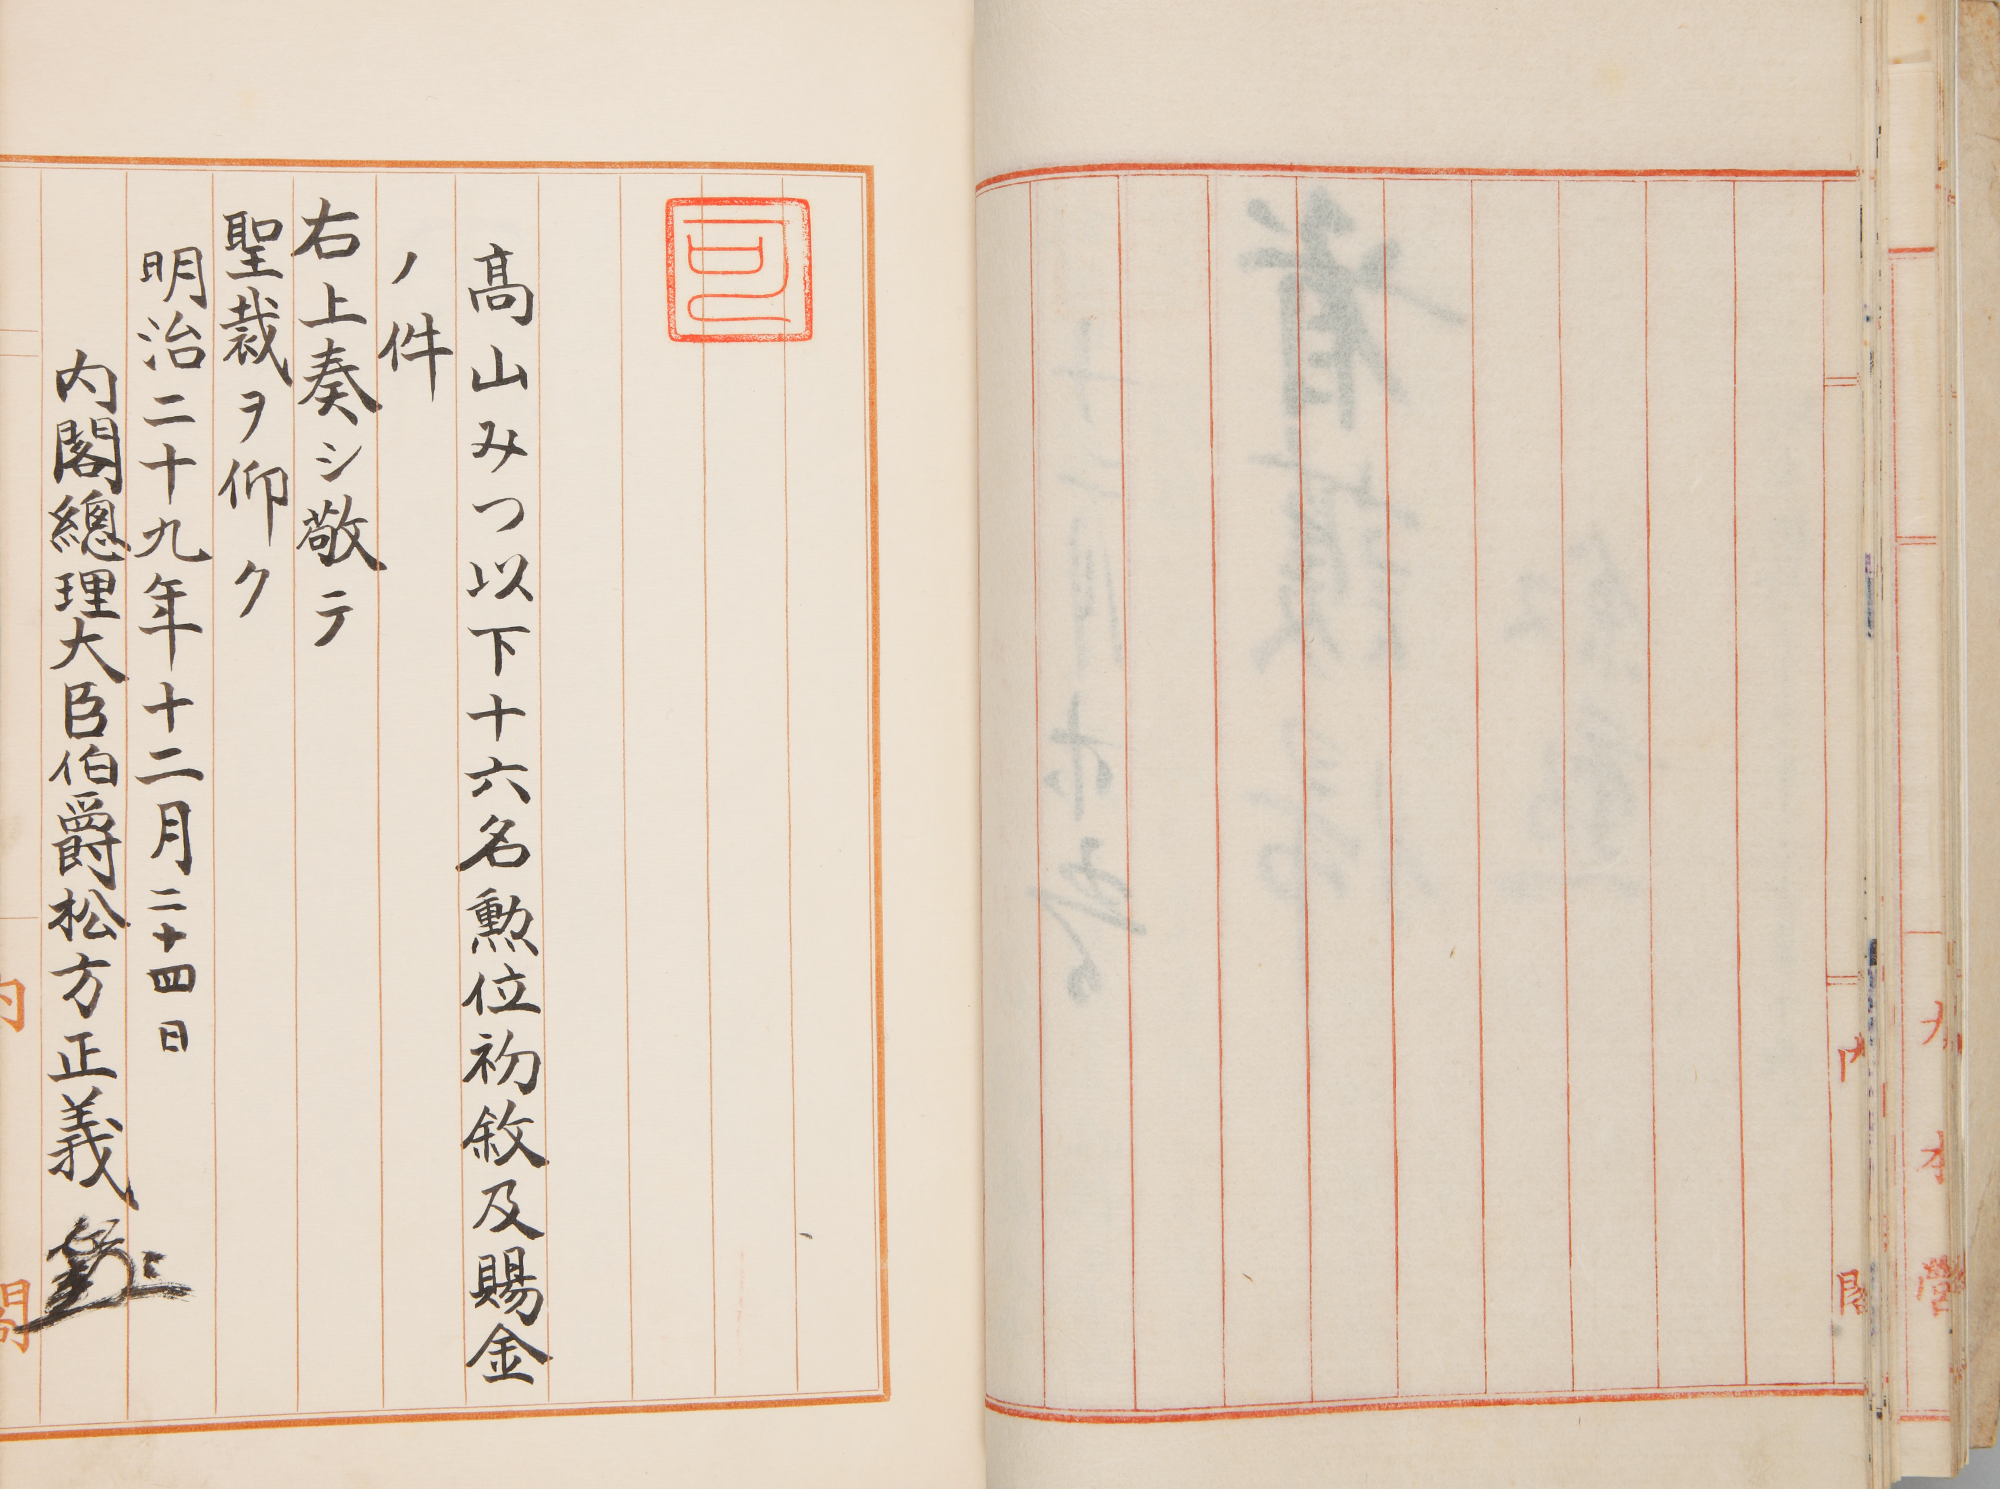 大本營
内閣
可
高山みつ以下十六名勲位初敘及賜金
ノ件
右上奏シ敬テ
聖裁ヲ仰ク
明治二十九年十二月二十四日
内閣總理大臣伯爵松方正義
内閣